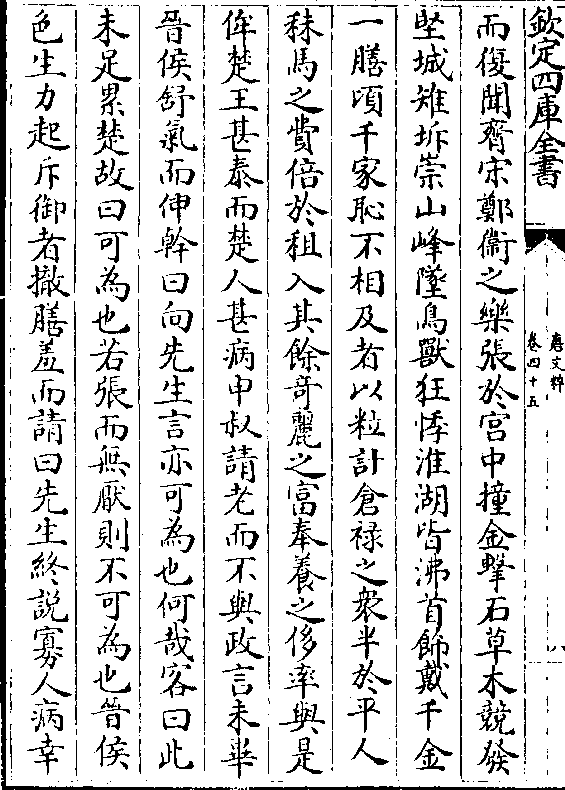 欽定四庫全書
唐文粹
卷四十五
八
而復聞齊宋鄭衞之樂張於宫中撞金擊石草木競發
堅城雉坼崇山峰墜鳥獸狂悸淮湖皆沸首飾戴千金
一膳頃千家恥不相及者以粒計倉禄之衆半於平人
秣馬之費倍於租入其餘奇麗之富奉養之侈率與是
侔楚王甚泰而楚人甚病申叔請老而不與政言未畢
晉侯舒氣而伸幹曰向先生言亦可為也何哉客曰此
未足累楚故曰可為也若張而無厭則不可為也晉侯
色生力起斥御者撤膳羞而請曰先生終説寡人病幸